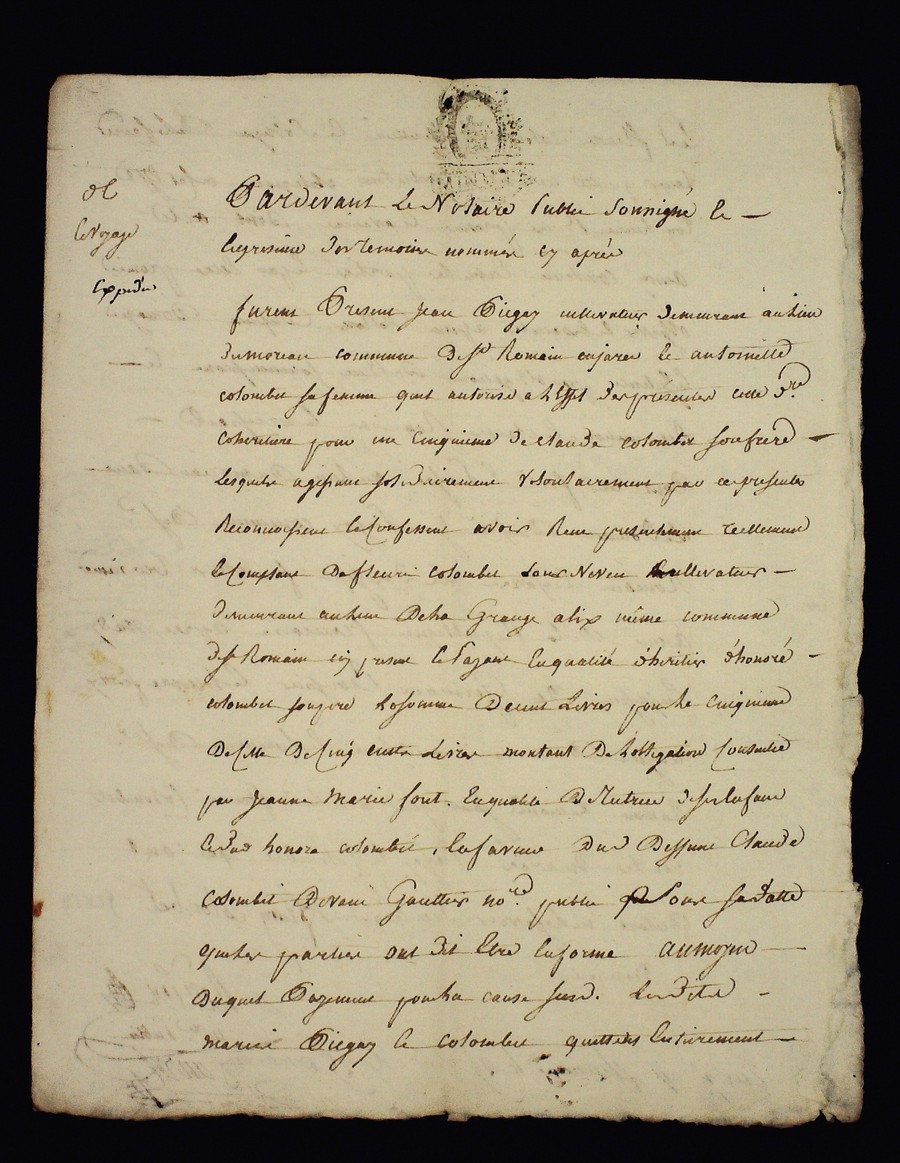 Pardevant Le Notaire Public Soussigné Le
les présence des témoins nommés cy après
furent Présent Jean Piegay cultivateur demeurant au Lieu
du moreau commune de St Romain en jarez Le antoinette
colombet sa femme quil autorise a leffet des présentes cette dre
coheritière pour un cinquieme de claude colombet son frere
Lesquels agissant solidairement volontairement par ces présentes
Reconnoissent le Confessent avoir Recu présentement réellement
le Comptant de fleuri colombet Leur Neveu cultivateur
demeurant au Lieu De La Grange alix même commune
de St Romain cy présent le Payant En qualité d'héritier d'honoré
colombet son pere La somme De cent Livres pour le cinquieme
De Celle De Cinq cents Livres montant De Lobligation Consentie
par Jeanne marie font. En qualité De tutrice de ses Enfans
le dud honoré colombet, En faveur Dud Deffunt Claude
Colombet Devant Gaultier nore public Sous sa datte
que les parties ont dit Etre En forme au moyen
Duquel Payement pour la cause susd. Les dits
mariés Piegay le colombet quittent Entierement
de
le Voyage
Expédié